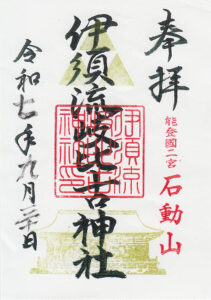 奉拝
能登國二宮
石動山
伊須流岐比古神社
伊須流
岐比古
神社印
令和七年九月日